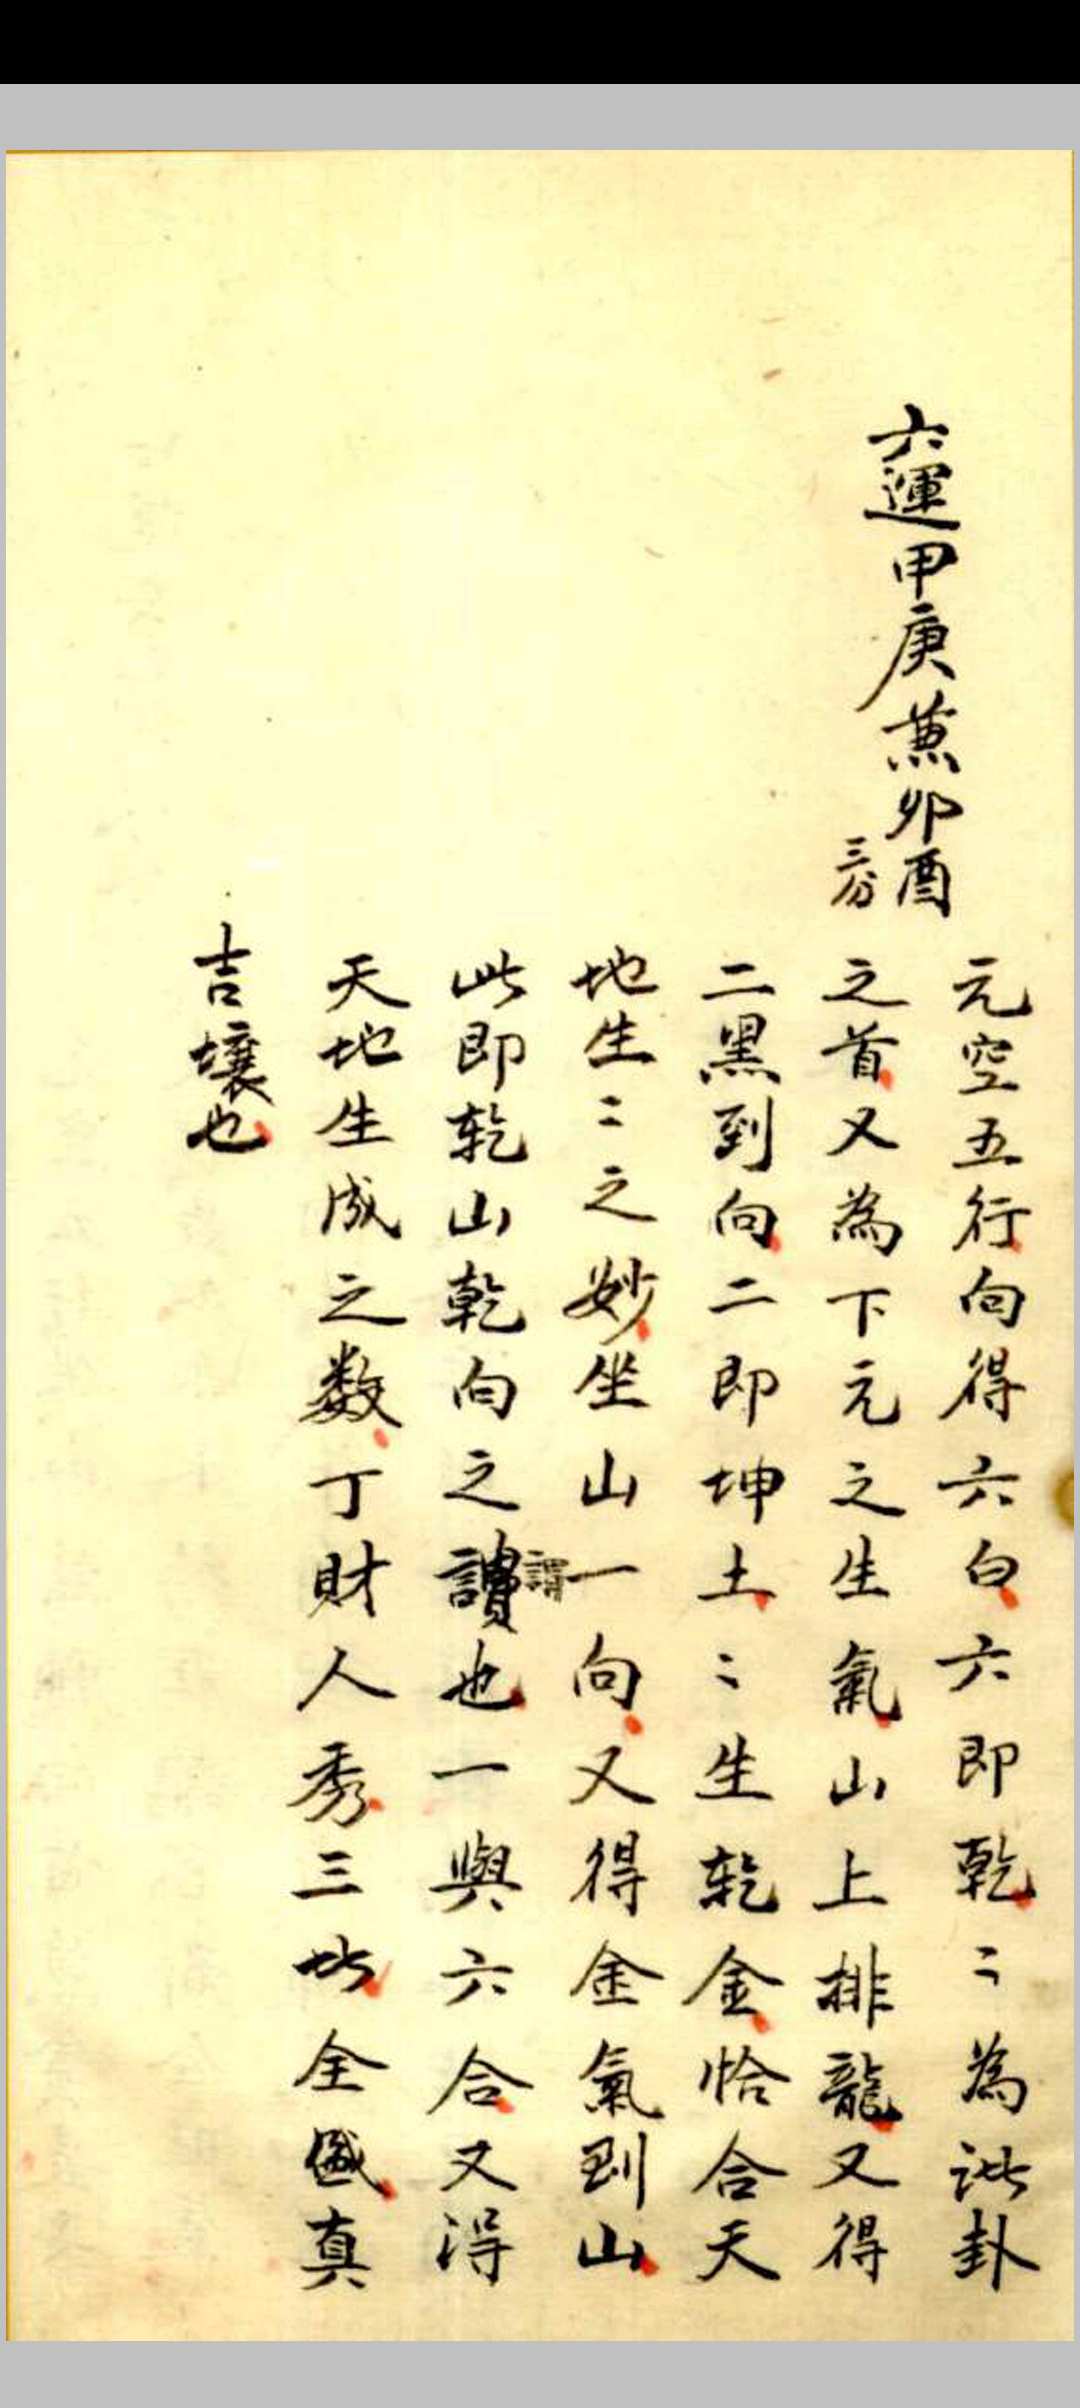 六運甲庚蕙卯酉
三分
元空五行向得六白六即乾〻為諸卦
之首又為下元之生氣山上排龍又得
二黑到向二即坤土〻生乾金恰合天
地生〻之妙坐山一向又得金氣到山
此即乾山乾向之謂也一與六合又得
謂
天地生成之数丁財人秀三比全盛真
吉壤也